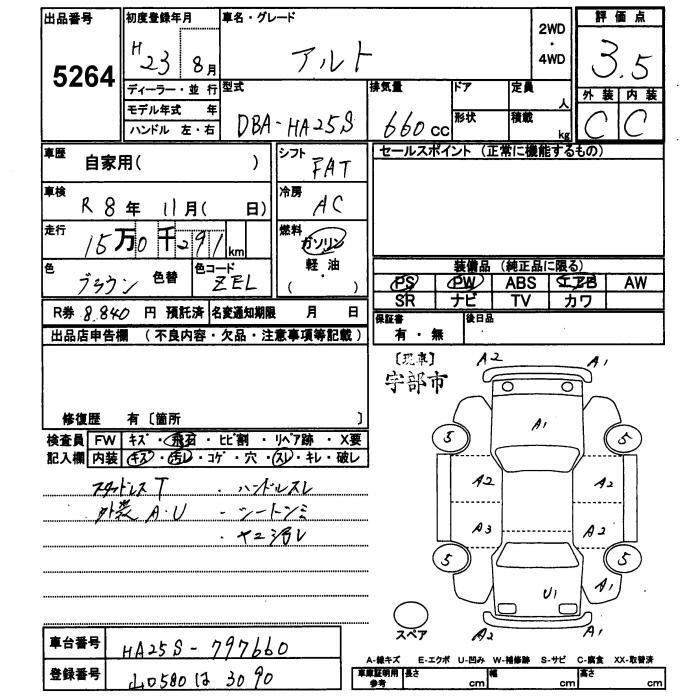 出品番号
5264
初度登録年月
H23 8月
車名・グレード
アルト
2WD
・
4WD
評価点
3.5
外装 内装
C C
ディーラー・並行
モデル年式 年
ハンドル 左・右
型式
DBA-HA25S
排気量
660cc
ドア
形状
定員
人
積載
kg
車歴
自家用( )
シフト
FAT
車検
R8年 11月( 日)
冷房
AC
走行
15万0千291km
燃料
ガソリン
軽・油
( )
色
ブラウン 色替
色コード
ZEL
R券 8.840 円 預託済
名変通知期限 月 日
セールスポイント (正常に機能するもの)
装備品 (純正品に限る)
PS PW ABS エアB AW
SR ナビ TV カワ
保証書
有・無
後日品
出品店申告欄 (不良内容・欠品・注意事項等記載)
修復歴 有〔箇所 〕
検査員
記入欄
FW キズ・飛石・ヒビ割・リペア跡・X要
内装 キズ・汚レ・コゲ・穴・スレ・キレ・破レ
スタッドレスT ・ハンドルスレ
外装 A・U ・シートシミ
[現車]
宇部市
A2 A1
A1
5 5
A2 A2
A3 A2
5 5
U1 A1
A2 A1
スペア
車台番号
HA25S-797660
登録番号
山口580は3090
A-線キズ E-エクボ U-凹み W-補修跡 S-サビ C-腐食 XX-取替済
車庫証明用
参考
長さ cm
幅 cm
高さ cm